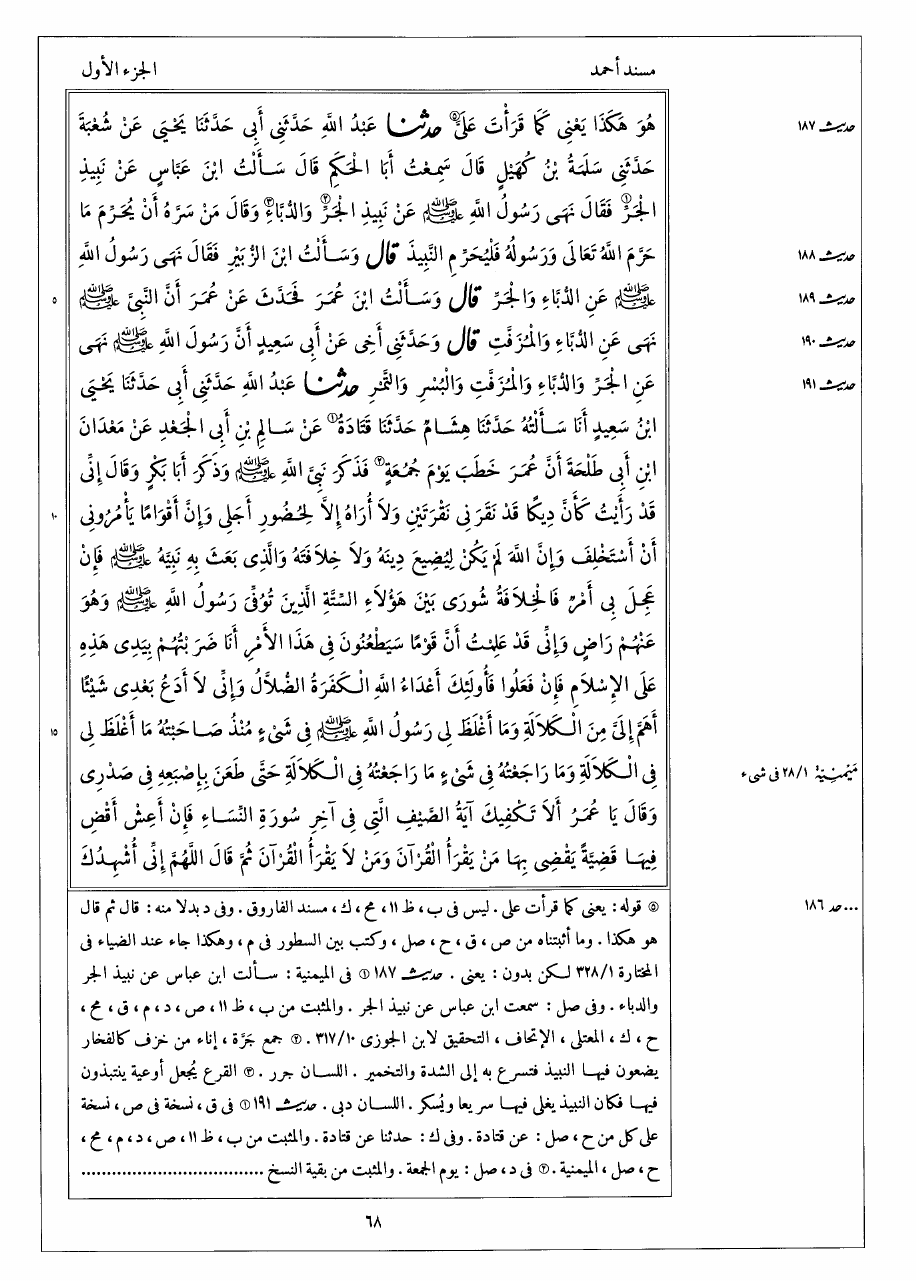 مسند أحمد
الجزء الأول
هُوَ هَكَذَا يَعْنِى كَمَا قَرَأْتَ عَلَىَّ⑤ حدثنا عَبْدُ اللَّهِ حَدَّثَنِى أَبِى حَدَّثَنَا يَحْيَى عَنْ شُعْبَةَ
حديث ١٨٧
حَدَّثَنِى سَلَمَةُ بْنُ كُهَيْلٍ قَالَ سَمِعْتُ أَبَا الْحَكَمِ قَالَ سَأَلْتُ ابْنَ عَبَّاسٍ عَنْ نَبِيذِ
الْجَرِّ① فَقَالَ نَهَى رَسُولُ اللَّهِ ﷺ عَنْ نَبِيذِ الْجَرِّ② وَالدُّبَّاءِ③ وَقَالَ مَنْ سَرَّهُ أَنْ يُحَرِّمَ مَا
حَرَّمَ اللَّهُ تَعَالَى وَرَسُولُهُ فَلْيُحَرِّمِ النَّبِيذَ قال وَسَأَلْتُ ابْنَ الزُّبَيْرِ فَقَالَ نَهَى رَسُولُ اللَّهِ
حديث ١٨٨
ﷺ عَنِ الدُّبَّاءِ وَالْجَرِّ قال وَسَأَلْتُ ابْنَ عُمَرَ فَحَدَّثَ عَنْ عُمَرَ أَنَّ النَّبِىَّ ﷺ
حديث ١٨٩
٥
نَهَى عَنِ الدُّبَّاءِ وَالْمُزَفَّتِ قال وَحَدَّثَنِى أَخِى عَنْ أَبِى سَعِيدٍ أَنَّ رَسُولَ اللَّهِ ﷺ نَهَى
حديث ١٩٠
عَنِ الْجَرِّ وَالدُّبَّاءِ وَالْمُزَفَّتِ وَالْبُسْرِ وَالتَّمْرِ حدثنا عَبْدُ اللَّهِ حَدَّثَنِى أَبِى حَدَّثَنَا يَحْيَى
حديث ١٩١
ابْنُ سَعِيدٍ أَنَا سَأَلْتُهُ حَدَّثَنَا هِشَامٌ حَدَّثَنَا قَتَادَةُ① عَنْ سَالِمِ بْنِ أَبِى الْجَعْدِ عَنْ مَعْدَانَ
ابْنِ أَبِى طَلْحَةَ أَنَّ عُمَرَ خَطَبَ يَوْمَ جُمُعَةٍ② فَذَكَرَ نَبِىَّ اللَّهِ ﷺ وَذَكَرَ أَبَا بَكْرٍ وَقَالَ إِنِّى
قَدْ رَأَيْتُ كَأَنَّ دِيكًا قَدْ نَقَرَنِى نَقْرَتَيْنِ وَلاَ أُرَاهُ إِلاَّ لِحُضُورِ أَجَلِى وَإِنَّ أَقْوَامًا يَأْمُرُونِى
١٠
أَنْ أَسْتَخْلِفَ وَإِنَّ اللَّهَ لَمْ يَكُنْ لِيُضِيعَ دِينَهُ وَلاَ خِلاَفَتَهُ وَالَّذِى بَعَثَ بِهِ نَبِيَّهُ ﷺ فَإِنْ
عَجِلَ بِى أَمْرٌ فَالْخِلاَفَةُ شُورَى بَيْنَ هَؤُلاَءِ السِّتَّةِ الَّذِينَ تُوُفِّىَ رَسُولُ اللَّهِ ﷺ وَهُوَ
عَنْهُمْ رَاضٍ وَإِنِّى قَدْ عَلِمْتُ أَنَّ قَوْمًا سَيَطْعُنُونَ فِى هَذَا الأَمْرِ أَنَا ضَرَبْتُهُمْ بِيَدِى هَذِهِ
عَلَى الإِسْلاَمِ فَإِنْ فَعَلُوا فَأُولَئِكَ أَعْدَاءُ اللَّهِ الْكَفَرَةُ الضُّلاَّلُ وَإِنِّى لاَ أَدَعُ بَعْدِى شَيْئًا
أَهَمَّ إِلَىَّ مِنَ الْكَلاَلَةِ وَمَا أَغْلَظَ لِى رَسُولُ اللَّهِ ﷺ فِى شَىْءٍ مُنْذُ صَاحَبْتُهُ مَا أَغْلَظَ لِى
١٥
فِى الْكَلاَلَةِ وَمَا رَاجَعْتُهُ فِى شَىْءٍ مَا رَاجَعْتُهُ فِى الْكَلاَلَةِ حَتَّى طَعَنَ بِإِصْبَعِهِ فِى صَدْرِى
مَيْمَنِيَّةُ ٢٨/١ فى شىء
وَقَالَ يَا عُمَرُ أَلاَ تَكْفِيكَ آيَةُ الصَّيْفِ الَّتِى فِى آخِرِ سُورَةِ النِّسَاءِ فَإِنْ أَعِشْ أَقْضِ
فِيهَا قَضِيَّةً يَقْضِى بِهَا مَنْ يَقْرَأُ الْقُرْآنَ وَمَنْ لاَ يَقْرَأُ الْقُرْآنَ ثُمَّ قَالَ اللَّهُمَّ إِنِّى أُشْهِدُكَ
⑤ قوله: يعنى كما قرأت على. ليس فى ب، ظ ١١، مح، ك، مسند الفاروق. وفى د بدلا منه: قال ثم قال
...حد ١٨٦
هو هكذا. وما أثبتناه من ص، ق، ح، صل، وكتب بين السطور فى م، وهكذا جاء عند الضياء فى
المختارة ٣٢٨/١ لكن بدون: يعنى. حديث ١٨٧ ① فى الميمنية: سألت ابن عباس عن نبيذ الجر
والدباء. وفى صل: سمعت ابن عباس عن نبيذ الجر. والمثبت من ب، ظ ١١، ص، د، م، ق، مح،
ح، ك، المعتلى، الإتحاف، التحقيق لابن الجوزى ٣١٧/١٠. ② جمع جَرَّة، إناء من خزف كالفخار
يضعون فيها النبيذ فتسرع به إلى الشدة والتخمير. اللسان جرر. ③ القرع يُجعل أوعية ينتبذون
فيها فكان النبيذ يغلى فيها سريعا ويُسكر. اللسان دبى. حديث ١٩١ ① فى ق، نسخة فى ص، نسخة
على كل من ح، صل: عن قتادة. وفى ك: حدثنا عن قتادة. والمثبت من ب، ظ ١١، ص، د، م، مح،
ح، صل، الميمنية. ② فى د، صل: يوم الجمعة. والمثبت من بقية النسخ ....................................
٦٨